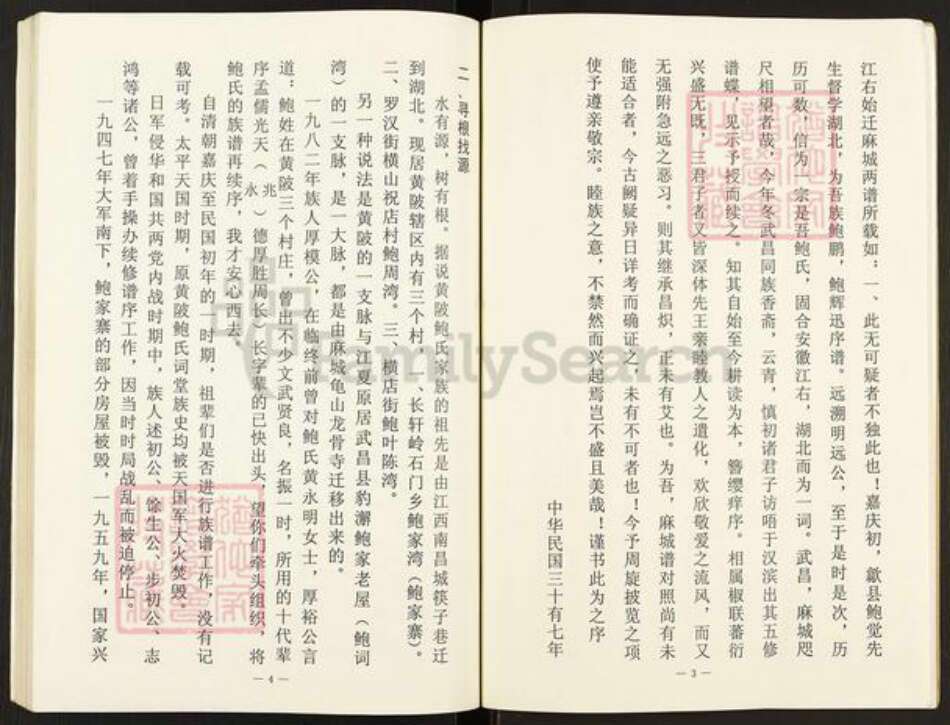 江右始迁麻城两谱所载如：一、此无可疑者不独此也！嘉庆初，歙县鲍觉先
生督学湖北，为吾族鲍鹏，鲍辉迅序谱。远溯明远公，至于是时是次，历
历可数，信为一宗是吾鲍氏，固合安徽江右，湖北而为一词。武昌，麻城咫
尺相望者哉，今年冬武昌同族香斋，云青，慎初诸君子访唔于汉滨出其五修
谱蝶，见示予授而续之。知其自始至今耕读为本，簪缨庠序。相属椒联蕃衍
兴盛无既，三君子者又皆深体先王亲睦教人之遗化，欢欣敬爱之流风，而又
无强附急远之恶习。则其继承昌炽，正未有艾也。为吾，麻城谱对照尚有未
能适合者，今古阙疑异日详考而确证之，未有不可者也！今予周旋披览之项
使予遵亲敬宗。睦族之意，不禁然而兴起焉岂不盛且美哉！谨书此为之序
中华民国三十有七年
—3—
二、寻根找源
水有源，树有根。据说黄陂鲍氏家族的祖先是由江西南昌城筷子巷迁
到湖北。现居黄陂辖区内有三个村一、长轩岭石门乡鲍家湾（鲍家寨）。
二、罗汉街横山祝店村鲍周湾。三、横店街鲍叶陈湾。
另一种说法是黄陂的一支脉与江夏原居武昌县豹澥鲍家老屋（鲍词
湾）的一支脉，是一大脉，都是由麻城龟山龙骨寺迁移出来的。
一九八二年族人厚模公，在临终前曾对鲍氏黄永明女士，厚裕公言
道：鲍姓在黄陂三个村庄，曾出不少文武贤良，名振一时，所用的十代辈
序孟儒光天（兆永）德厚胜周长）长字辈的已快出头，望你们牵头组织，将
鲍氏的族谱再续序，我才安心西去。
自清朝嘉庆至民国初年的一时期，祖辈们是否进行族谱工作，没有记
载可考。太平天国时期，原黄陂鲍氏词堂族史均被天国军大火焚毁。
日军侵华和国共两党内战时期中，族人述初公、馀生公、步初公、志
鸿等诸公，曾着手操办续修谱序工作，因当时时局战乱而被迫停止。
一九四七年大军南下，鲍家寨的部分房屋被毁，一九五九年，国家兴
—4—
FamilySearch